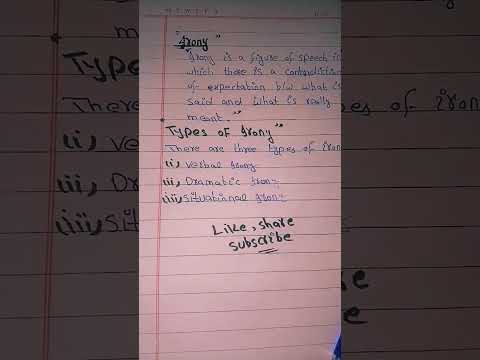 "Irony"
"Irony is a figure of speech in
which there is a contradiction
of expectation b/w what is
said and what is really
meant."
Types of Irony"
There are three types of Iron
(i) Verbal Irony
(ii) Dramatic Irony
(iii) Situational Irony
Like, share
subscribe